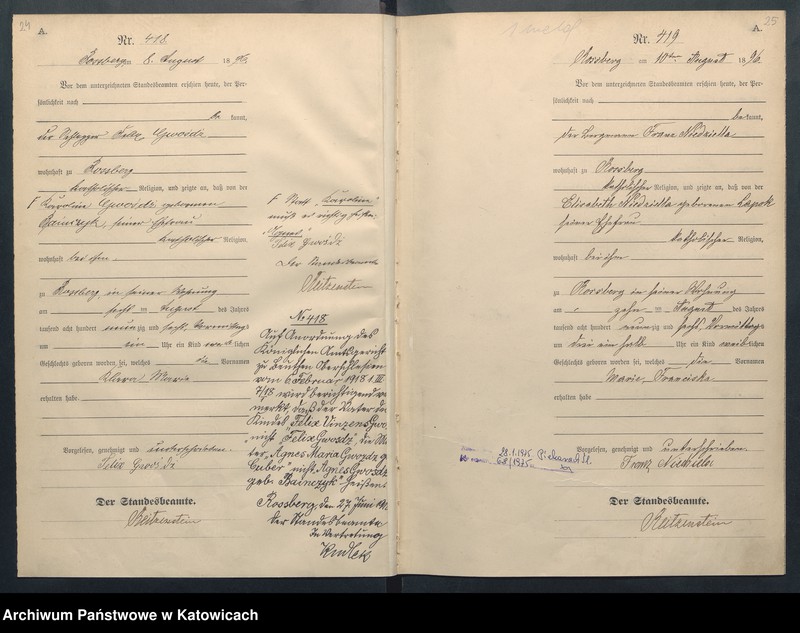 24
A.
Nr. 418
Rossberg am 8. August 1896.
Vor dem unterzeichneten Standesbeamten erschien heute, der Per-
sönlichkeit nach
be kannt,
der Felix Gwosdz
wohnhaft zu Rossberg
katholischer Religion, und zeigte an, daß von der
F Karoline Gwosdz geborenen
Bainczyk, seiner Ehefrau
katholischer Religion,
wohnhaft bei ihm
zu Rossberg in seiner Wohnung
am sechsten August des Jahres
tausend acht hundert neunzig und sechs Vormittags
um ein Uhr ein Kind weiblichen
Geschlechts geboren worden sei, welches die Vornamen
Klara Marie
erhalten habe
Vorgelesen, genehmigt und unterschrieben.
Felix Gwosdz
Der Standesbeamte.
Reitzenstein
F Statt "Karoline"
muß es richtig heißen
"Agnes"
Felix Gwosdz
Der Standesbeamte
Reitzenstein
No 418
Auf Anordnung des
Königlichen Amtsgericht
zu Beuthen Oberschlesien
vom 6. Februar 1918 1 III
7/18 wird berichtigend ver
merkt, daß der Vater des
Kindes "Felix Vinzens Gwo
"nicht "Felix Gwosdz", die Mu
ter "Agnes Maria Gwozdz g
Cuber" nicht "Agnes Gwosdz
geb. Bainczyk" heissen
Rossberg, den 27. Juni 191
Der Standesbeamte
In Vertretung
25
A.
Nr. 419
Rossberg am 10ten August 1896.
Vor dem unterzeichneten Standesbeamten erschien heute, der Per-
sönlichkeit nach
be kannt,
der Bergmann Franz Niedziella
wohnhaft zu Rossberg
katholischer Religion, und zeigte an, daß von der
Elisabeth Niedziella geborenen Lapok
seiner Ehefrau
katholischer Religion,
wohnhaft bei ihm
zu Rossberg in seiner Wohnung
am zehnten August des Jahres
tausend acht hundert neunzig und sechs Vormittags
um drei ein halb Uhr ein Kind weiblichen
Geschlechts geboren worden sei, welches die Vornamen
Marie Franciska
erhalten habe
Vorgelesen, genehmigt und unterschrieben.
Franz
28.1.1975 Piekarach Śl.
68/1975
Der Standesbeamte.
Reitzenstein
Archiwum Państwowe w Katowicach